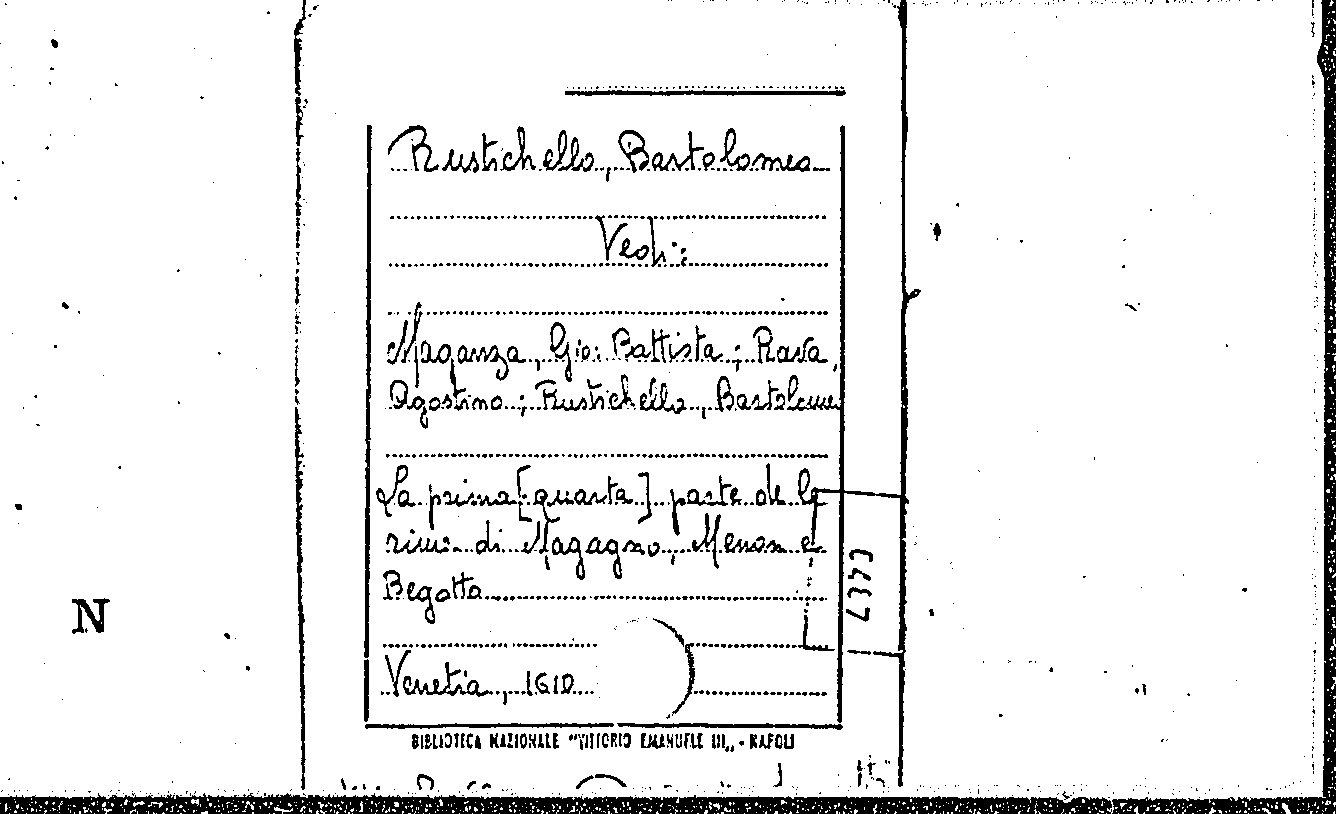 Rustichello, Bartolomeo
Vedi:
Maganza, Gio: Battista; Rava,
Agostino; Rustichello, Bartolomeo
La prima [quarta] parte de le
rime di Magagnò, Menon e
Begotto
N
Venetia, 1610
BIBLIOTECA NAZIONALE "VITTORIO EMANUELE III„ - NAPOLI